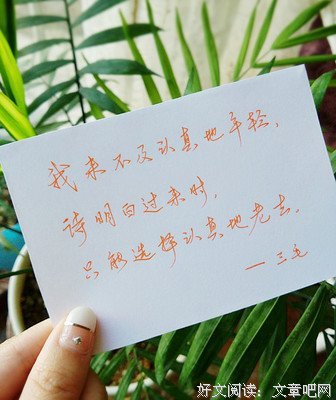 我来不及认真地年轻，
待明白过来时，
只能选择认真地老去。
——三毛
好文阅读：文章吧网